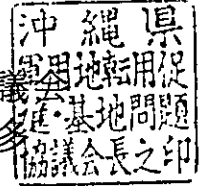 沖縄県
軍用地転用促
進・基地問題
協議会長之印
議会
多